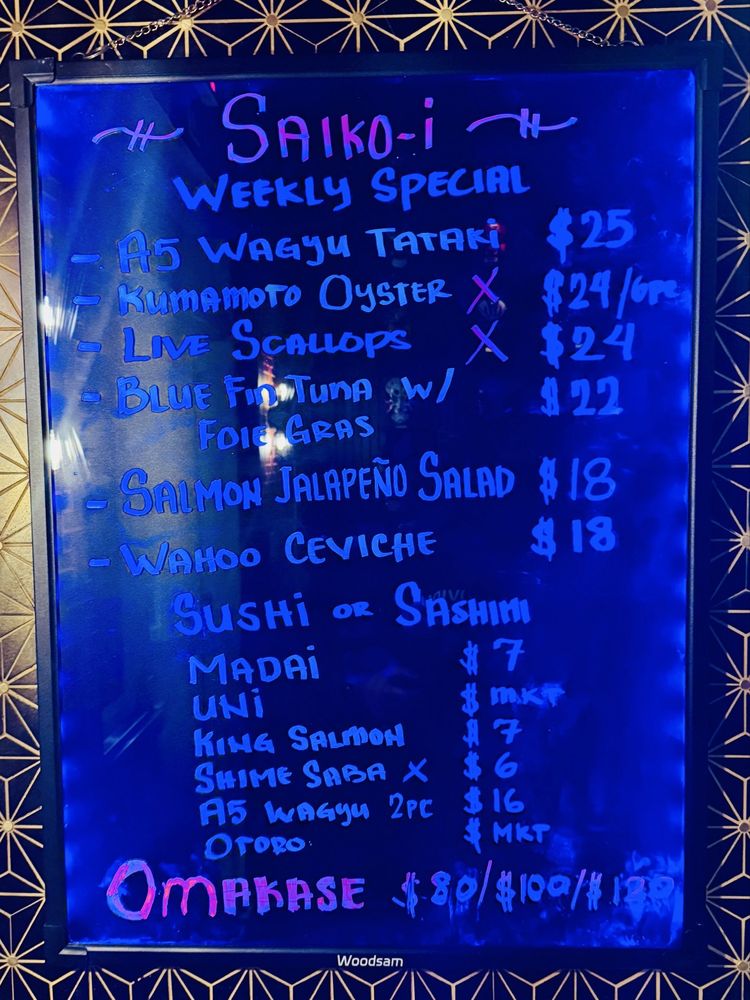 SAIKO-i
WEEKLY SPECIAL
- A5 WAGYU TATAKi $25
- KUMAMOTO OYSTER X $24/6PC
- LIVE SCALLOPS X $24
- BLUE FIN TUNA W/ $22
FOIE GRAS
- SALMON JALAPEÑO SALAD $18
- WAHOO CEVICHE $18
SUSHi OR SASHIMI
MADAi $7
UNi $MKT
KING SALMON $7
SHIME SABA X $6
A5 WAGYU 2PC $16
OTORO $MKT
OMAKASE $80/$100/$120
Woodsam